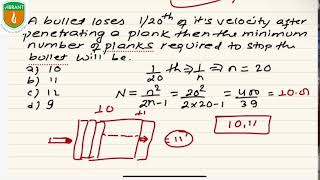 VIBRANT
A bullet loses 1/20th of its velocity after
penetrating a plank then the minimum
number of planks required to stop the
bullet will be.
a) 10
b) 11
c) 12
d) 9
1/20 th ⇒ 1/n ⇒ n = 20
N = n²/2n-1 = 20²/2×20-1 = 400/39 = 10.
10 11
= 11
10, 11